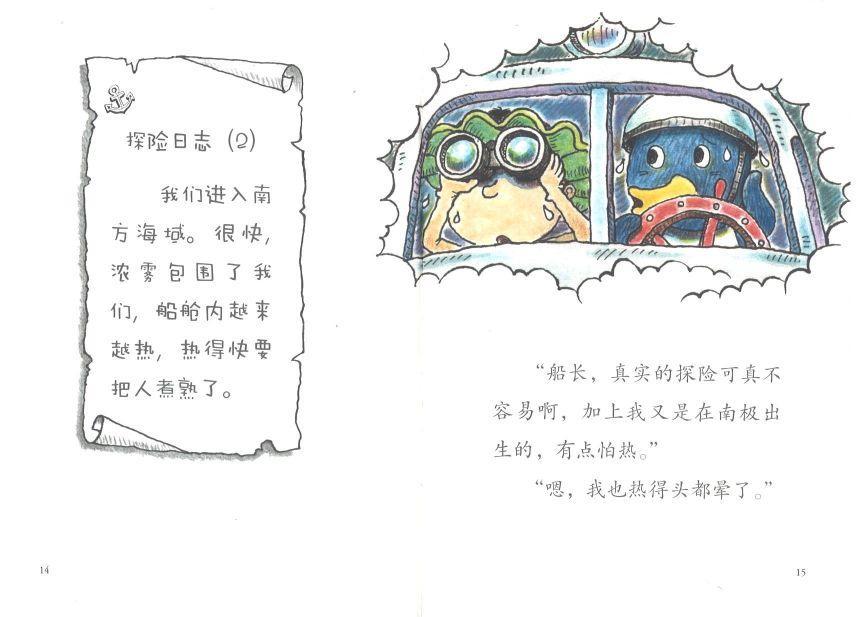 探险日志（2）
我们进入南
方海域。很快，
浓雾包围了我
们，船舱内越来
越热，热得快要
把人煮熟了。
14
“船长，真实的探险可真不
容易啊，加上我又是在南极出
生的，有点怕热。”
“嗯，我也热得头都晕了。”
15